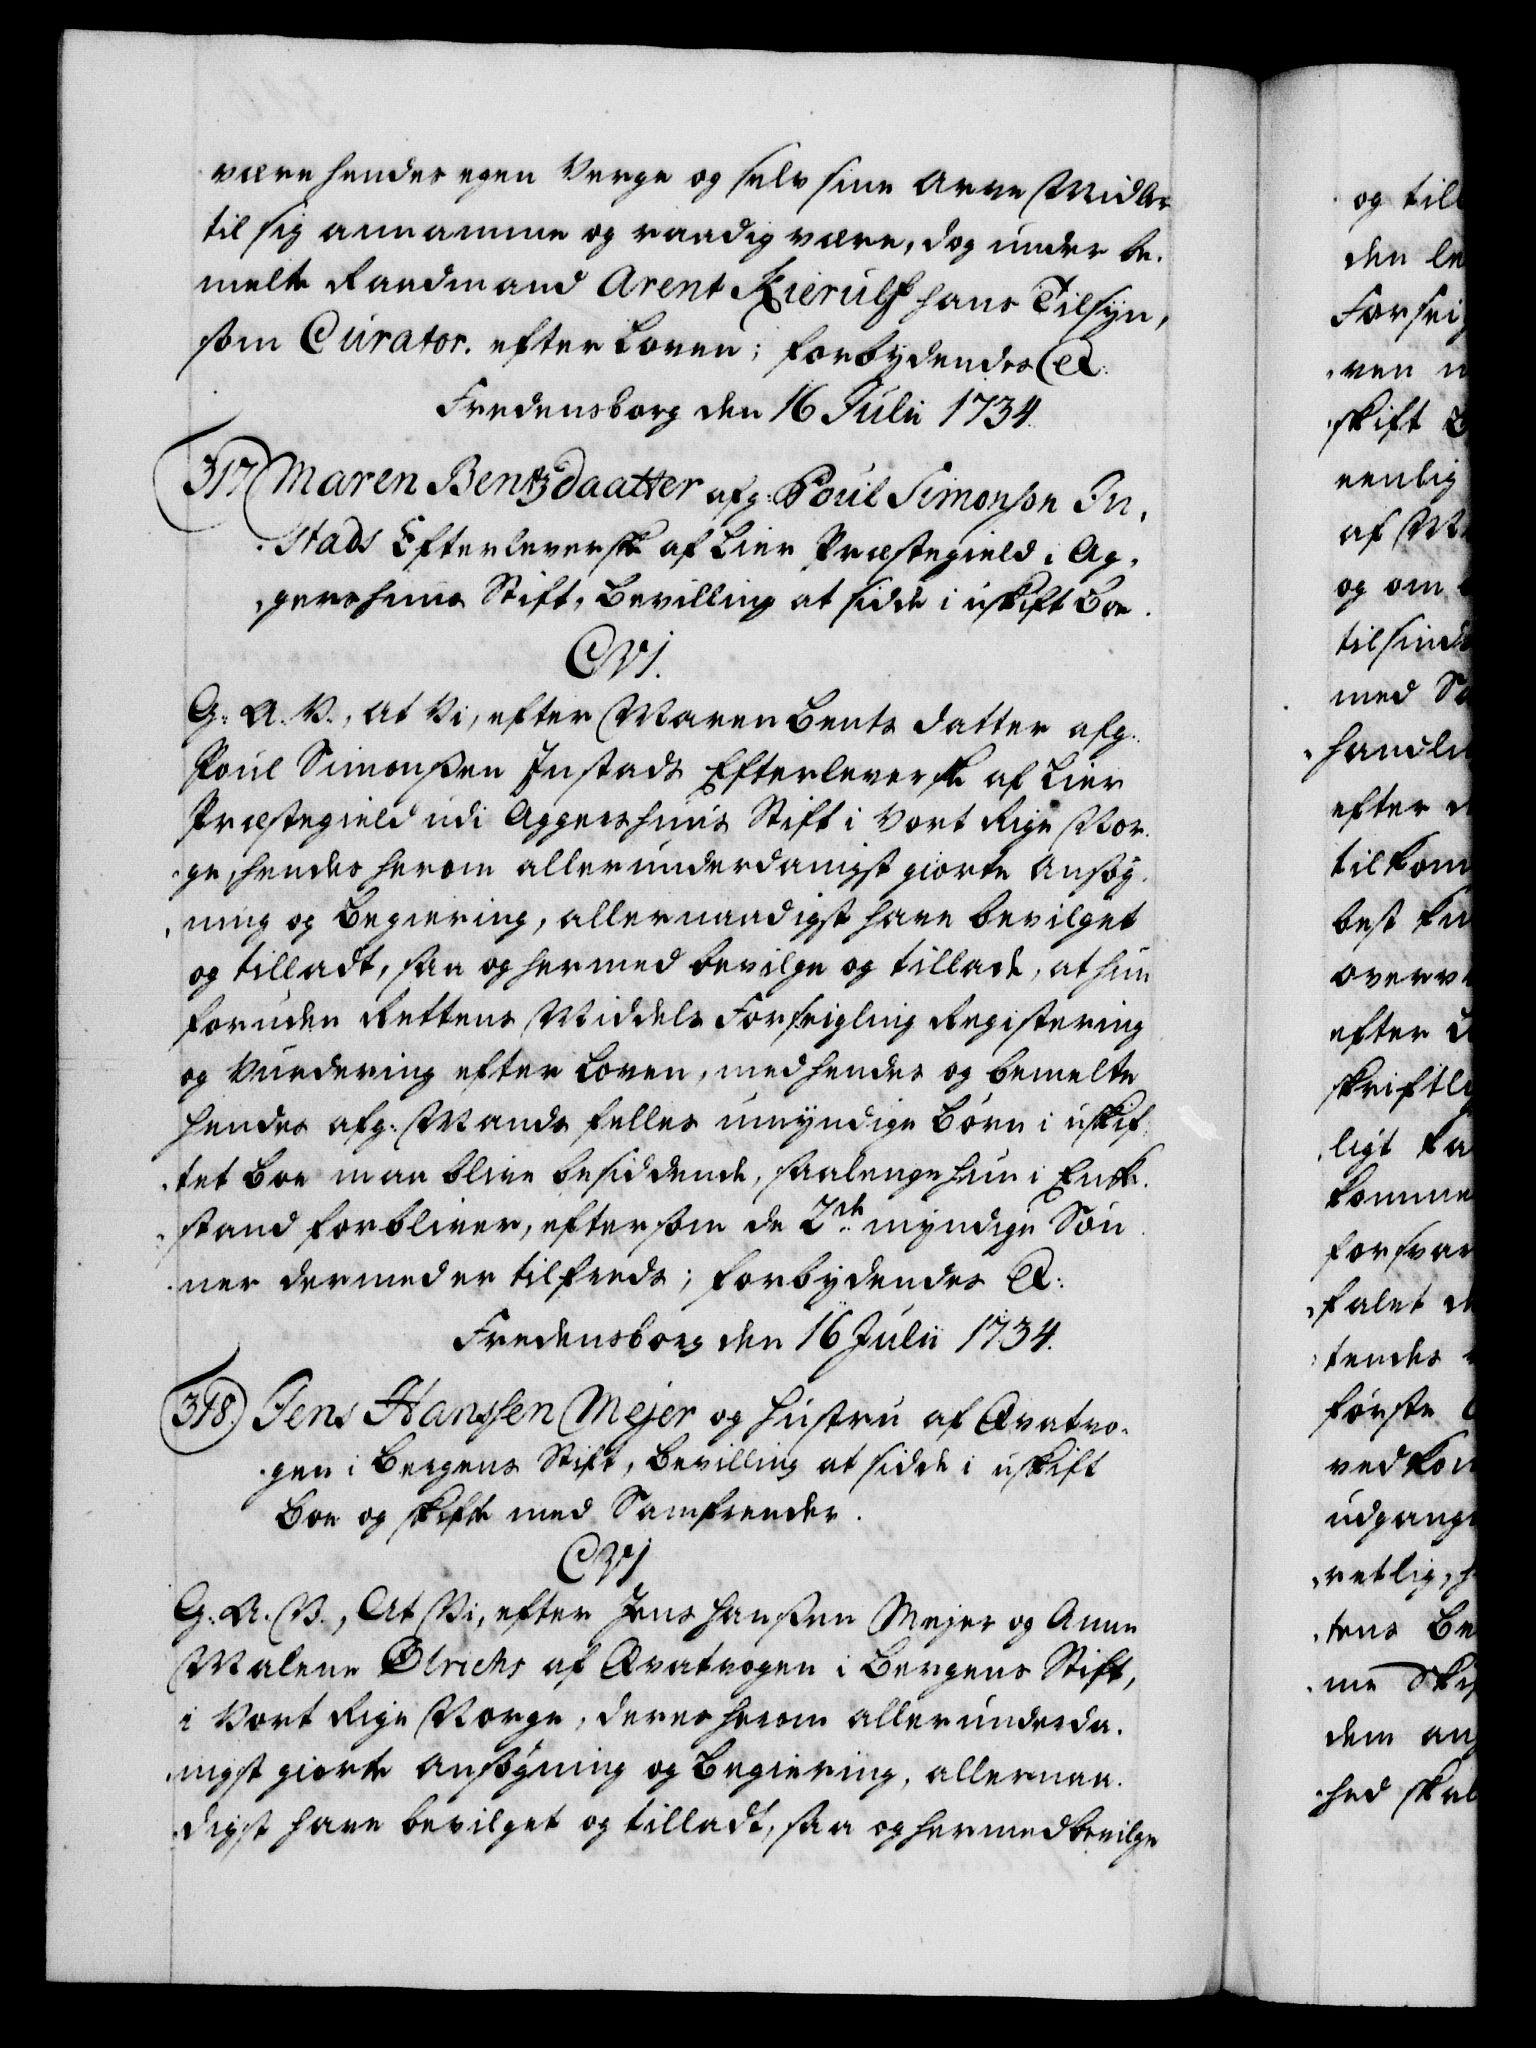 være hendes egen Verge og selv sine Arve Midler
til sig annamme og raadig være, dog under be-
melte Raadmand Arent Kierulf hans Tilsyn,
som Curator. efter Loven; forbydendes etc:
Fredensborg den 16 Julii 1734.
317. Maren Bentzdaatter afg: Poul Simonsøn In-
stads Efterleverske af Lier Præstegield i Ag-
gershuus Stift, Bevilling at sidde i uskift Boe.
C VI.
G: A. V., At Vi, efter Maren Bents datter afg:
Poul Simonsen Instads Efterleverske af Lier
Præstegield udi Aggershuus Stift i Vort Rige Nor-
ge, hendes herom allerunderdanigst giorte Ansøg-
ning og Begiering, allernaadigst have bevilget
og tilladt, saa og hermed bevilge og tillade, at hun
foruden Rettens Middels Forseigling Registering
og Vurdering efter Loven, med hendes og bemelte
hendes afg: Mands felles umyndige Børn i uskif-
tet Boe maa blive besiddende, saalenge hun i Enke-
stand forbliver, eftersom de 2de myndige Søn-
ner dermed er tilfreds; forbydendes etc:
Fredensborg den 16 Julii 1734.
318. Jens Hanssen Mejer og Hustru af Qvatvo-
gen i Bergens Stift, Bevilling at sidde i uskift
Boe og skifte med Samfrender.
C VI
G: A. V., At Vi, efter Jens Hanssen Mejer og Anne
Malene Olrichs af Qvatvogen i Bergens Stift,
i Vort Rige Norge, deres herom allerunderda-
nigst giorte Ansøgning og Begiering, allernaa-
digst have bevilget og tilladt, saa og hermed bevilge
og till
den le
Forsei
ven
skift
eenlig
af
og om
tilsind
med
handle
efter
tilkom
best
overv
efter
skriftl
ligt
komme
forsvar
falet
tendes
første
vedkom
udgang
retlig,
tens Be
me Ski
dem an
hed skal